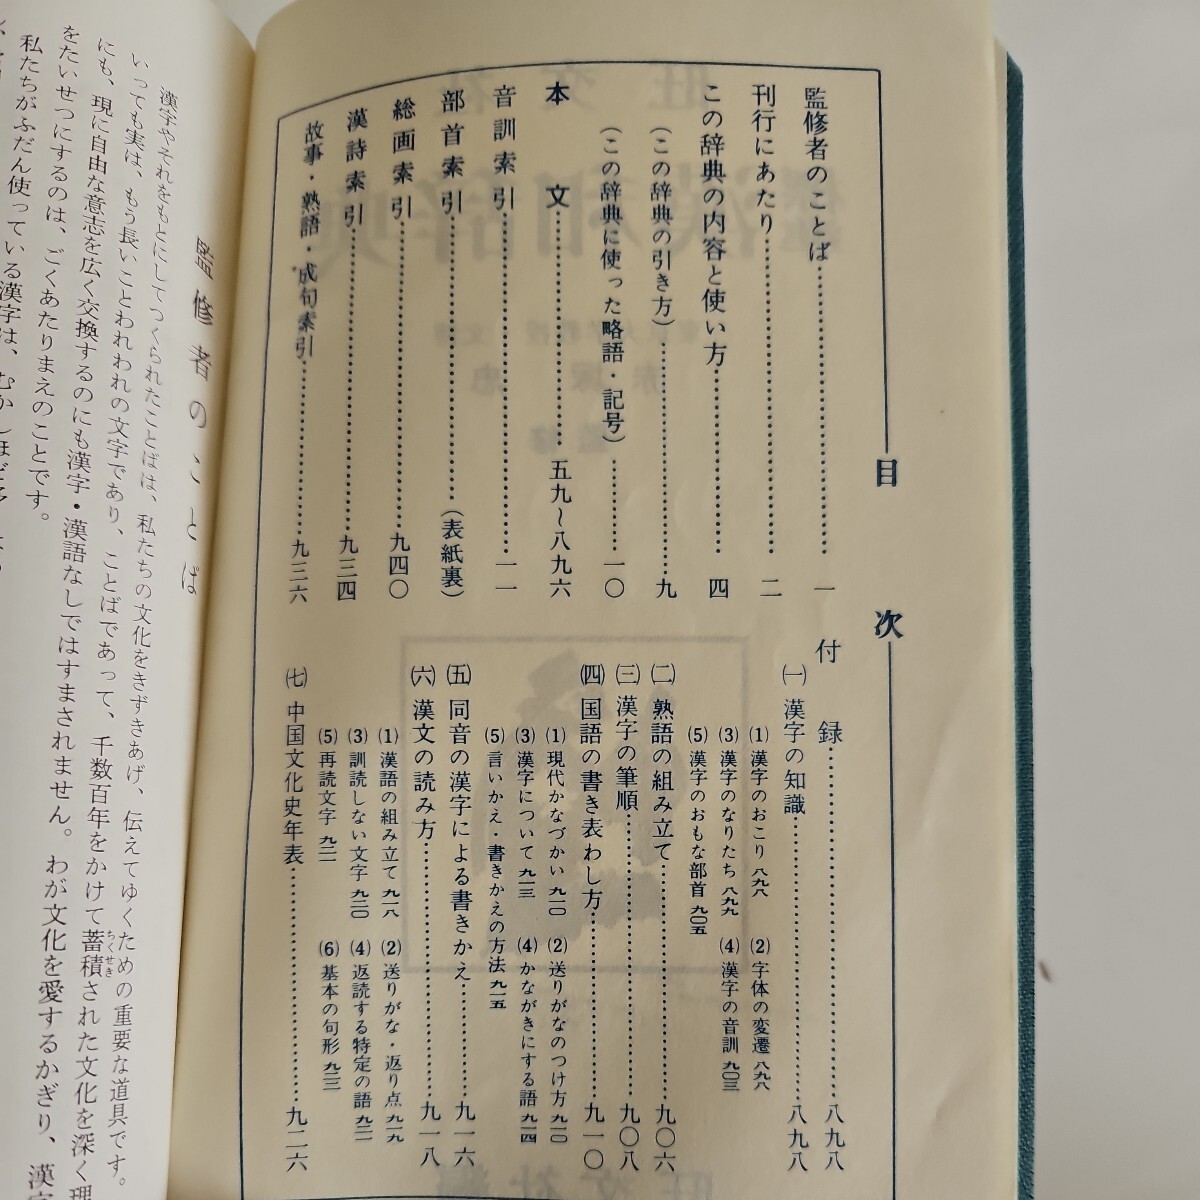 目次
監修者のことば……一
刊行にあたり……二
この辞典の内容と使い方……四
(この辞典の引き方)……九
(この辞典に使った略語・記号)……一〇
本文……五九〜八九六
音訓索引……一一
部首索引……(表紙裏)
総画索引……九四〇
漢詩索引……九三四
故事・熟語・成句索引……九三六
付録……八九八
㈠ 漢字の知識……八九八
⑴ 漢字のおこり 八九八 ⑵ 字体の変遷 八九八
⑶ 漢字のなりたち 八九九 ⑷ 漢字の音訓 九〇三
⑸ 漢字のおもな部首 九〇五
㈡ 熟語の組み立て……九〇六
㈢ 漢字の筆順……九〇八
㈣ 国語の書き表わし方……九一〇
⑴ 現代かなづかい 九一〇 ⑵ 送りがなのつけ方 九一〇
⑶ 漢字について 九一三 ⑷ かながきにする語 九一四
⑸ 言いかえ・書きかえの方法 九一五
㈤ 同音の漢字による書きかえ……九一六
㈥ 漢文の読み方……九一八
⑴ 漢語の組み立て 九一八 ⑵ 送りがな・返り点 九一九
⑶ 訓読しない文字 九二〇 ⑷ 返読する特定の語 九二一
⑸ 再読文字 九二二 ⑹ 基本の句形 九二三
㈦ 中国文化史年表……九二六
監修者のことば
漢字やそれをもとにしてつくられたことばは、私たちの文化をきずきあげ、伝えてゆくための重要な道具です。
いっても実は、もう長いことわれわれの文字であり、ことばであって、千数百年をかけて蓄積された文化を深く理
ちくせき
にも、現に自由な意志を広く交換するのにも漢字・漢語なしではすまされません。わが文化を愛するかぎり、漢字
をたいせつにするのは、ごくあたりまえのことです。
私たちがふだん使っている漢字は、むかしほど